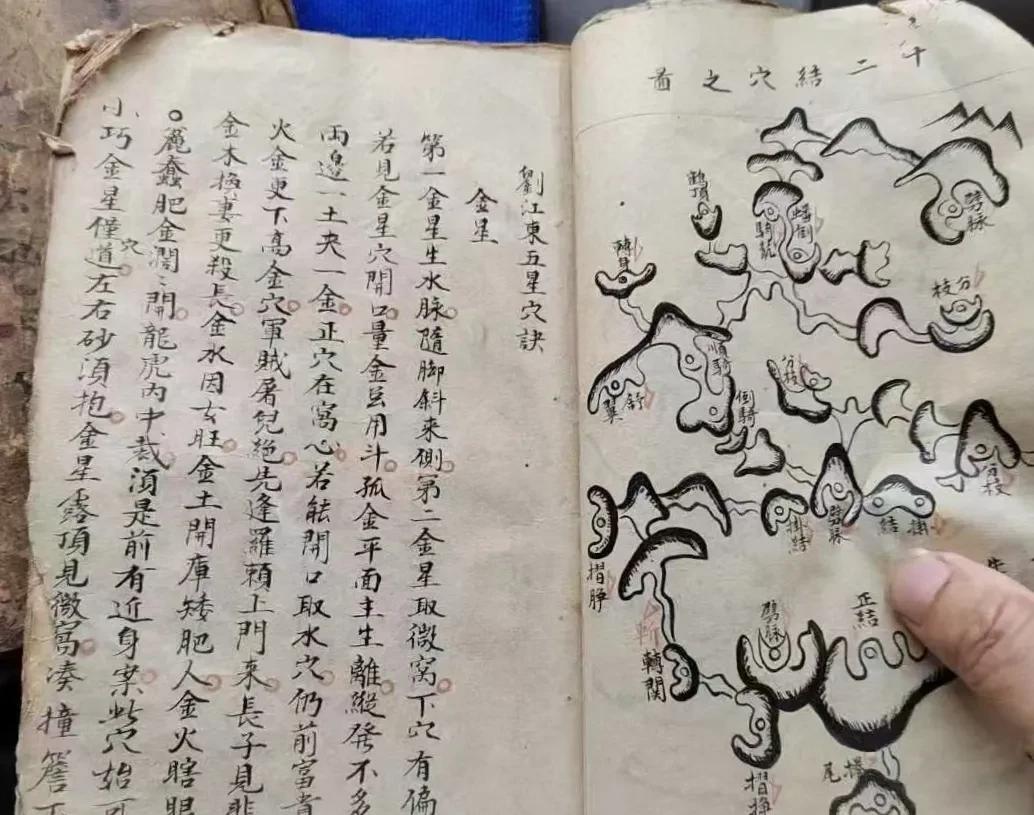 十二結穴之圖
鶴頂
騎龍
蟠龍
劈脉
轉身
分枝
順騎
舒翼
倒騎
分枝
分枝
掛結
劈脉
掛結
摺脝
轉関
劈脉
正結
尾
劉江東五星穴訣
金星
第一金星生水脉隨脚斜來側第二金星取微窩下穴有偏
若見金星穴開口量金豆用斗孤金平面主生離縱發不多
両邉一土夾一金正穴在窩心若能開口取水穴仍前富貴
火金更下高金穴軍賊屠兒絶先逢羅頼上門來長子見
金木換妻更殺長金水因玄旺金土開庫矮肥人金火瞎眼
麄蠢肥金濶濶開龍虎內中裁須是前有近身案此穴始可
小巧金星僅道穴左右砂須抱金星露頂見微窩凑撞簷下